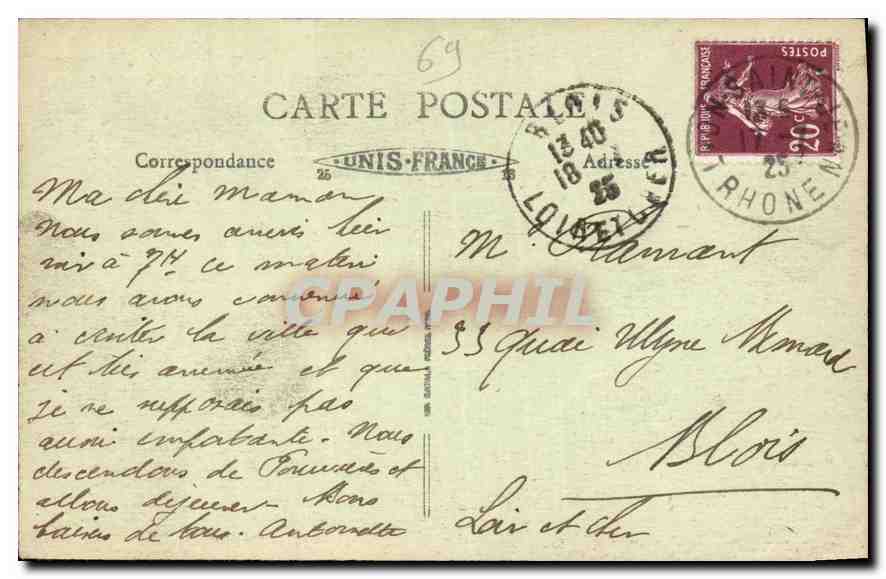 69
CARTE POSTALE
Correspondance
25 UNIS-FRANCE 28
Adresse
REPUBLIQUE FRANÇAISE
POSTES
20 C
BLOIS
13 40
18
25
LOIR ET CHER
25
RHONE
Ma chère maman
Nous sommes arrivés hier
soir à 7H ce matin
nous avons commencé
à visiter la ville que
est très animée et que
je ne supposais pas
aussi importante. Nous
descendons de Fourvières et
allons déjeuner. Bons
baisers de tous. Antoinette
M. Flamant
33 Quai Ulysse Besnard
Blois
Loir et cher
CPAPHIL